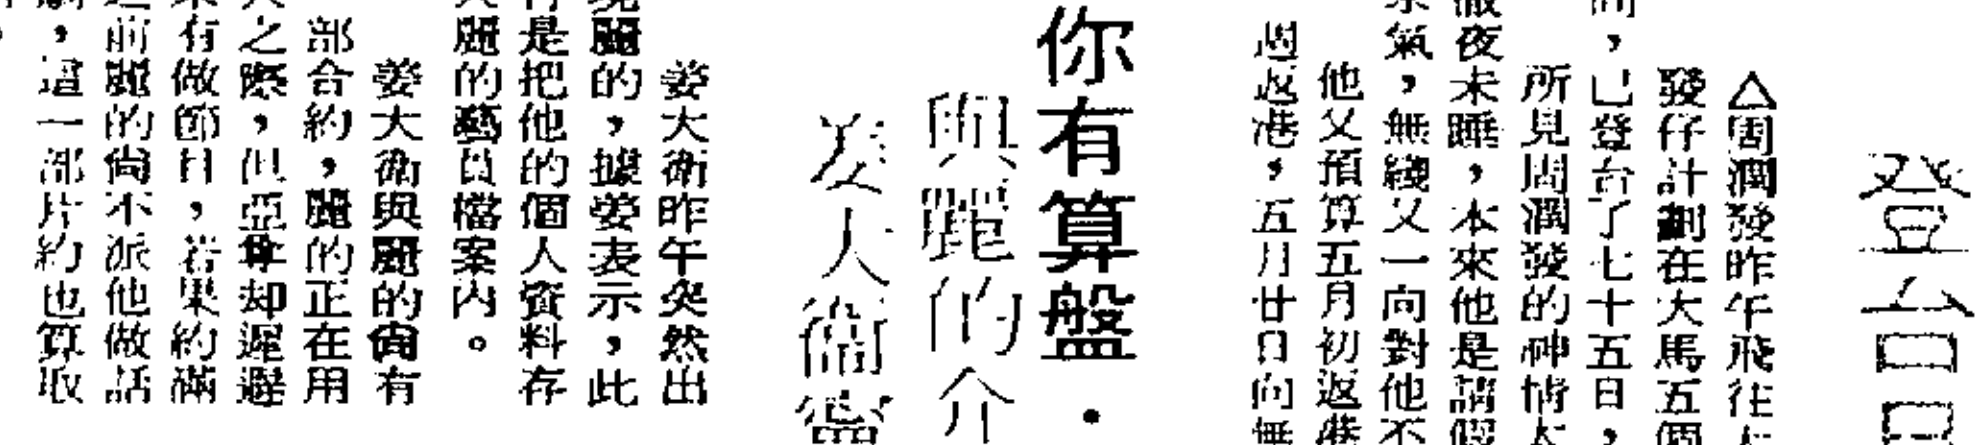 登台
△周潤發昨午飛往
發仔計劃在大馬五個
,已登台了七十五日,
所見周潤發的神情
徹夜未睡,本來他是請假
氣,無綫又一向對他不
他又預算五月初返港
週返港,五月廿日向無
你有算盤・
與麗的介
姜大衛
姜大衛昨午突然出
麗的,據姜表示,此
是把他的個人資料存
麗的藝員檔案內。
姜大衛與麗的尙有
部合約,麗的正在用
之際,但亞韋却遲遲
有做節目,若果約滿
前麗的尙不派他做話
劇,這一部片約也算取